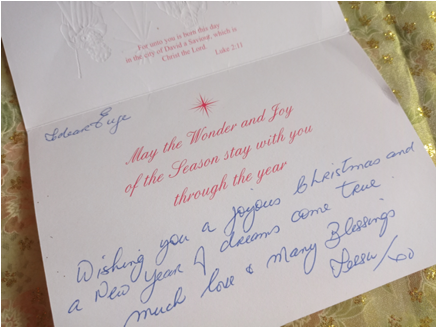 For unto you is born this day
in the city of David a Saviour, which is
Christ the Lord. Luke 2:11
May the Wonder and Joy
of the Season stay with you
through the year
Wishing you a joyous Christmas and
a New Year of dreams come true.
Much love & Many Blessings